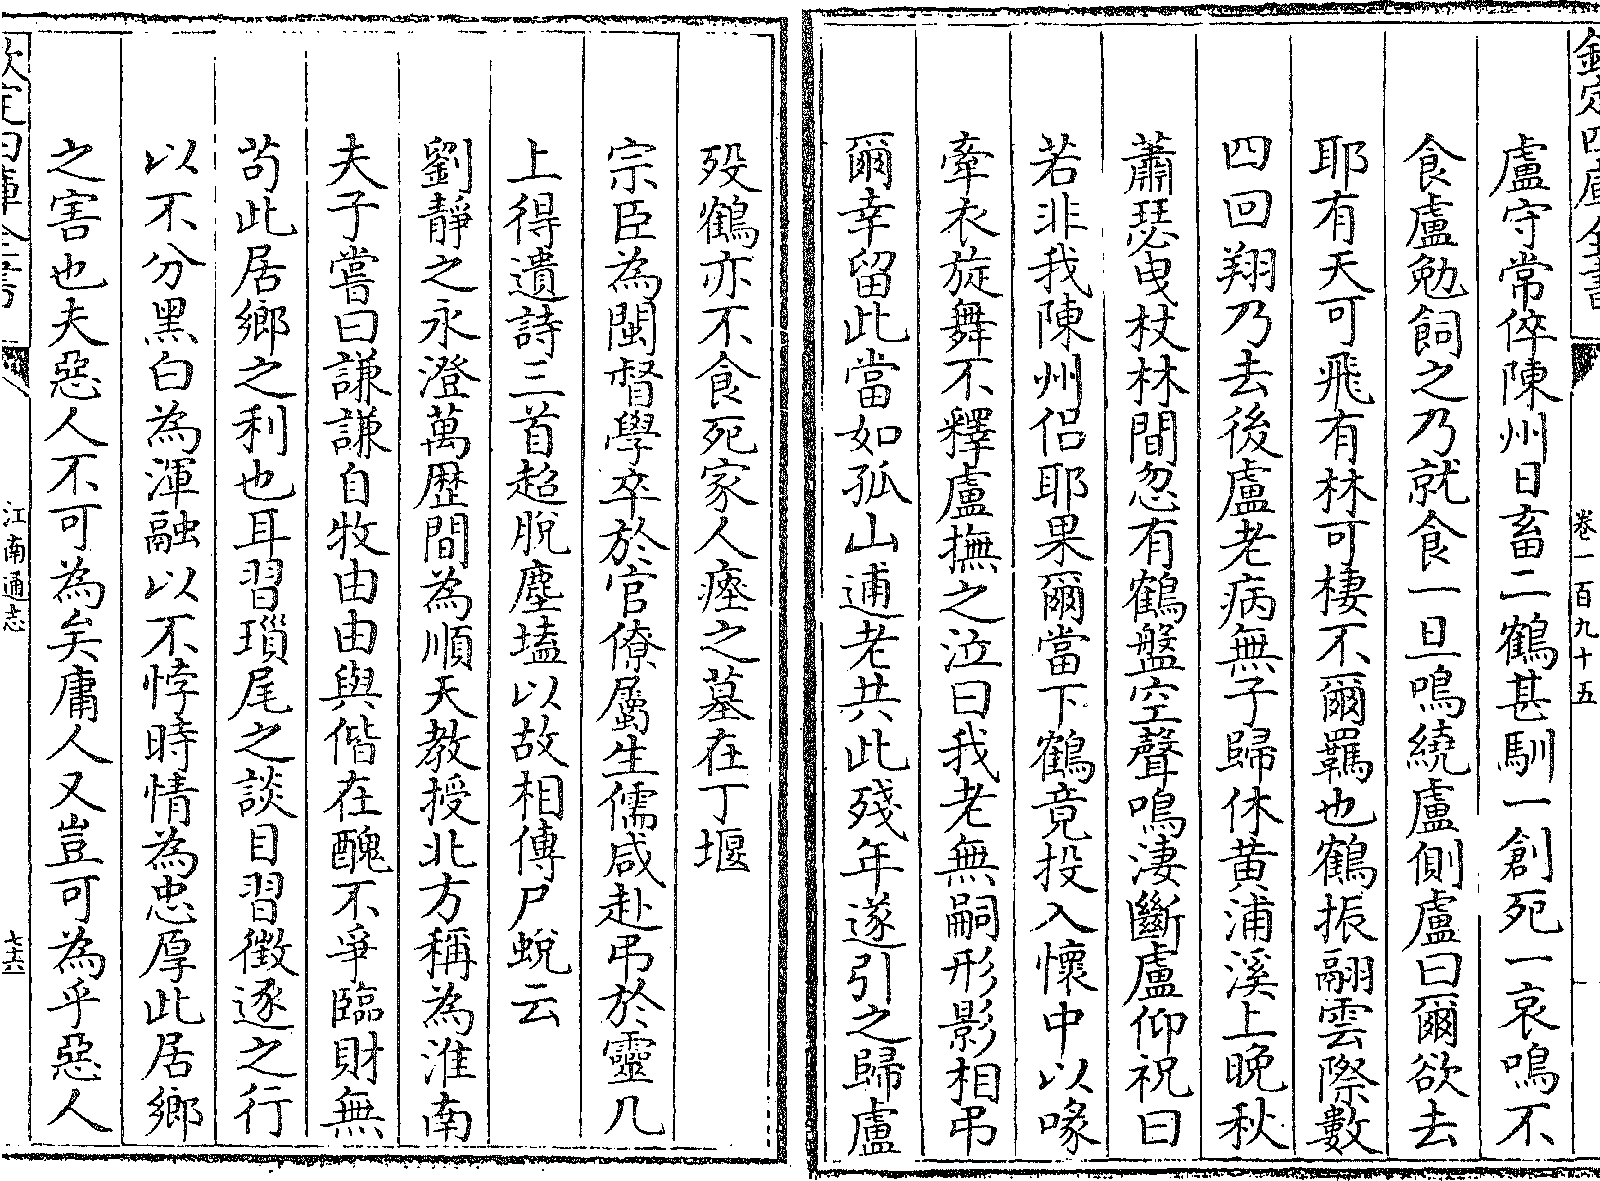 欽定四庫全書
卷一百九十五
盧守常倅陳州日畜二鶴甚馴一創死一哀鳴不
食盧勉飼之乃就食一旦鳴繞盧側盧曰爾欲去
耶有天可飛有林可棲不爾羈也鶴振翮雲際數
四回翔乃去後盧老病無子歸休黄浦溪上晚秋
蕭瑟曳杖林間忽有鶴盤空聲鳴淒斷盧仰祝曰
若非我陳州侣耶果爾當下鶴竟投入懷中以喙
牽衣旋舞不釋盧撫之泣曰我老無嗣形影相弔
爾幸留此當如孤山逋老共此殘年遂引之歸盧
殁鶴亦不食死家人瘞之墓在丁堰
宗臣為閩督學卒於官僚屬生儒咸赴弔於靈几
上得遺詩三首超脫塵壒以故相傳尸蛻云
劉靜之永澄萬歴間為順天教授北方稱為淮南
夫子嘗曰謙謙自牧由由與偕在醜不爭臨財無
苟此居鄉之利也耳習瑣尾之談目習徵逐之行
以不分黑白為渾融以不悖時情為忠厚此居鄉
之害也夫惡人不可為矣庸人又豈可為乎惡人
欽定四庫全書
江南通志
七十六